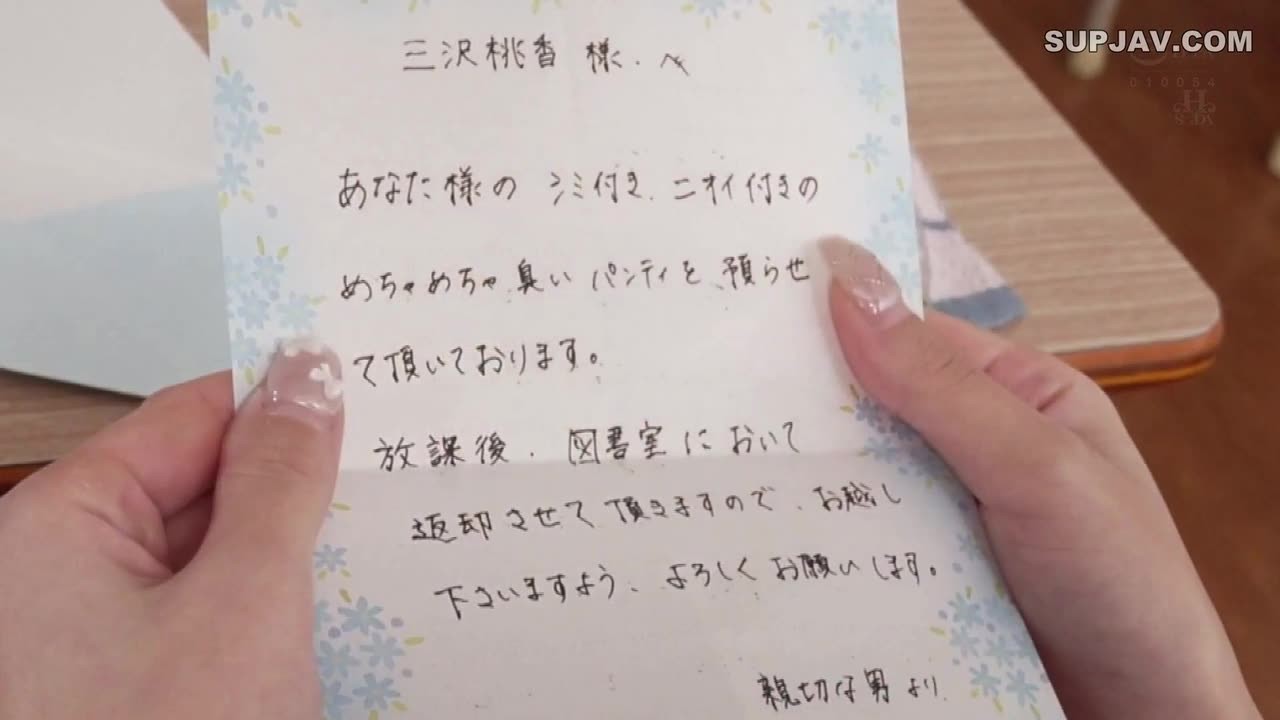 SUPJAV.COM
010054
三沢桃香 様.へ
あなた様の シミ付き、ニオイ付きの
めちゃめちゃ臭い パンティを 預らせ
て頂いております。
放課後、図書室において
返却させて頂きますので、お越し
下さいますよう、よろしくお願いします。
親切な男より.